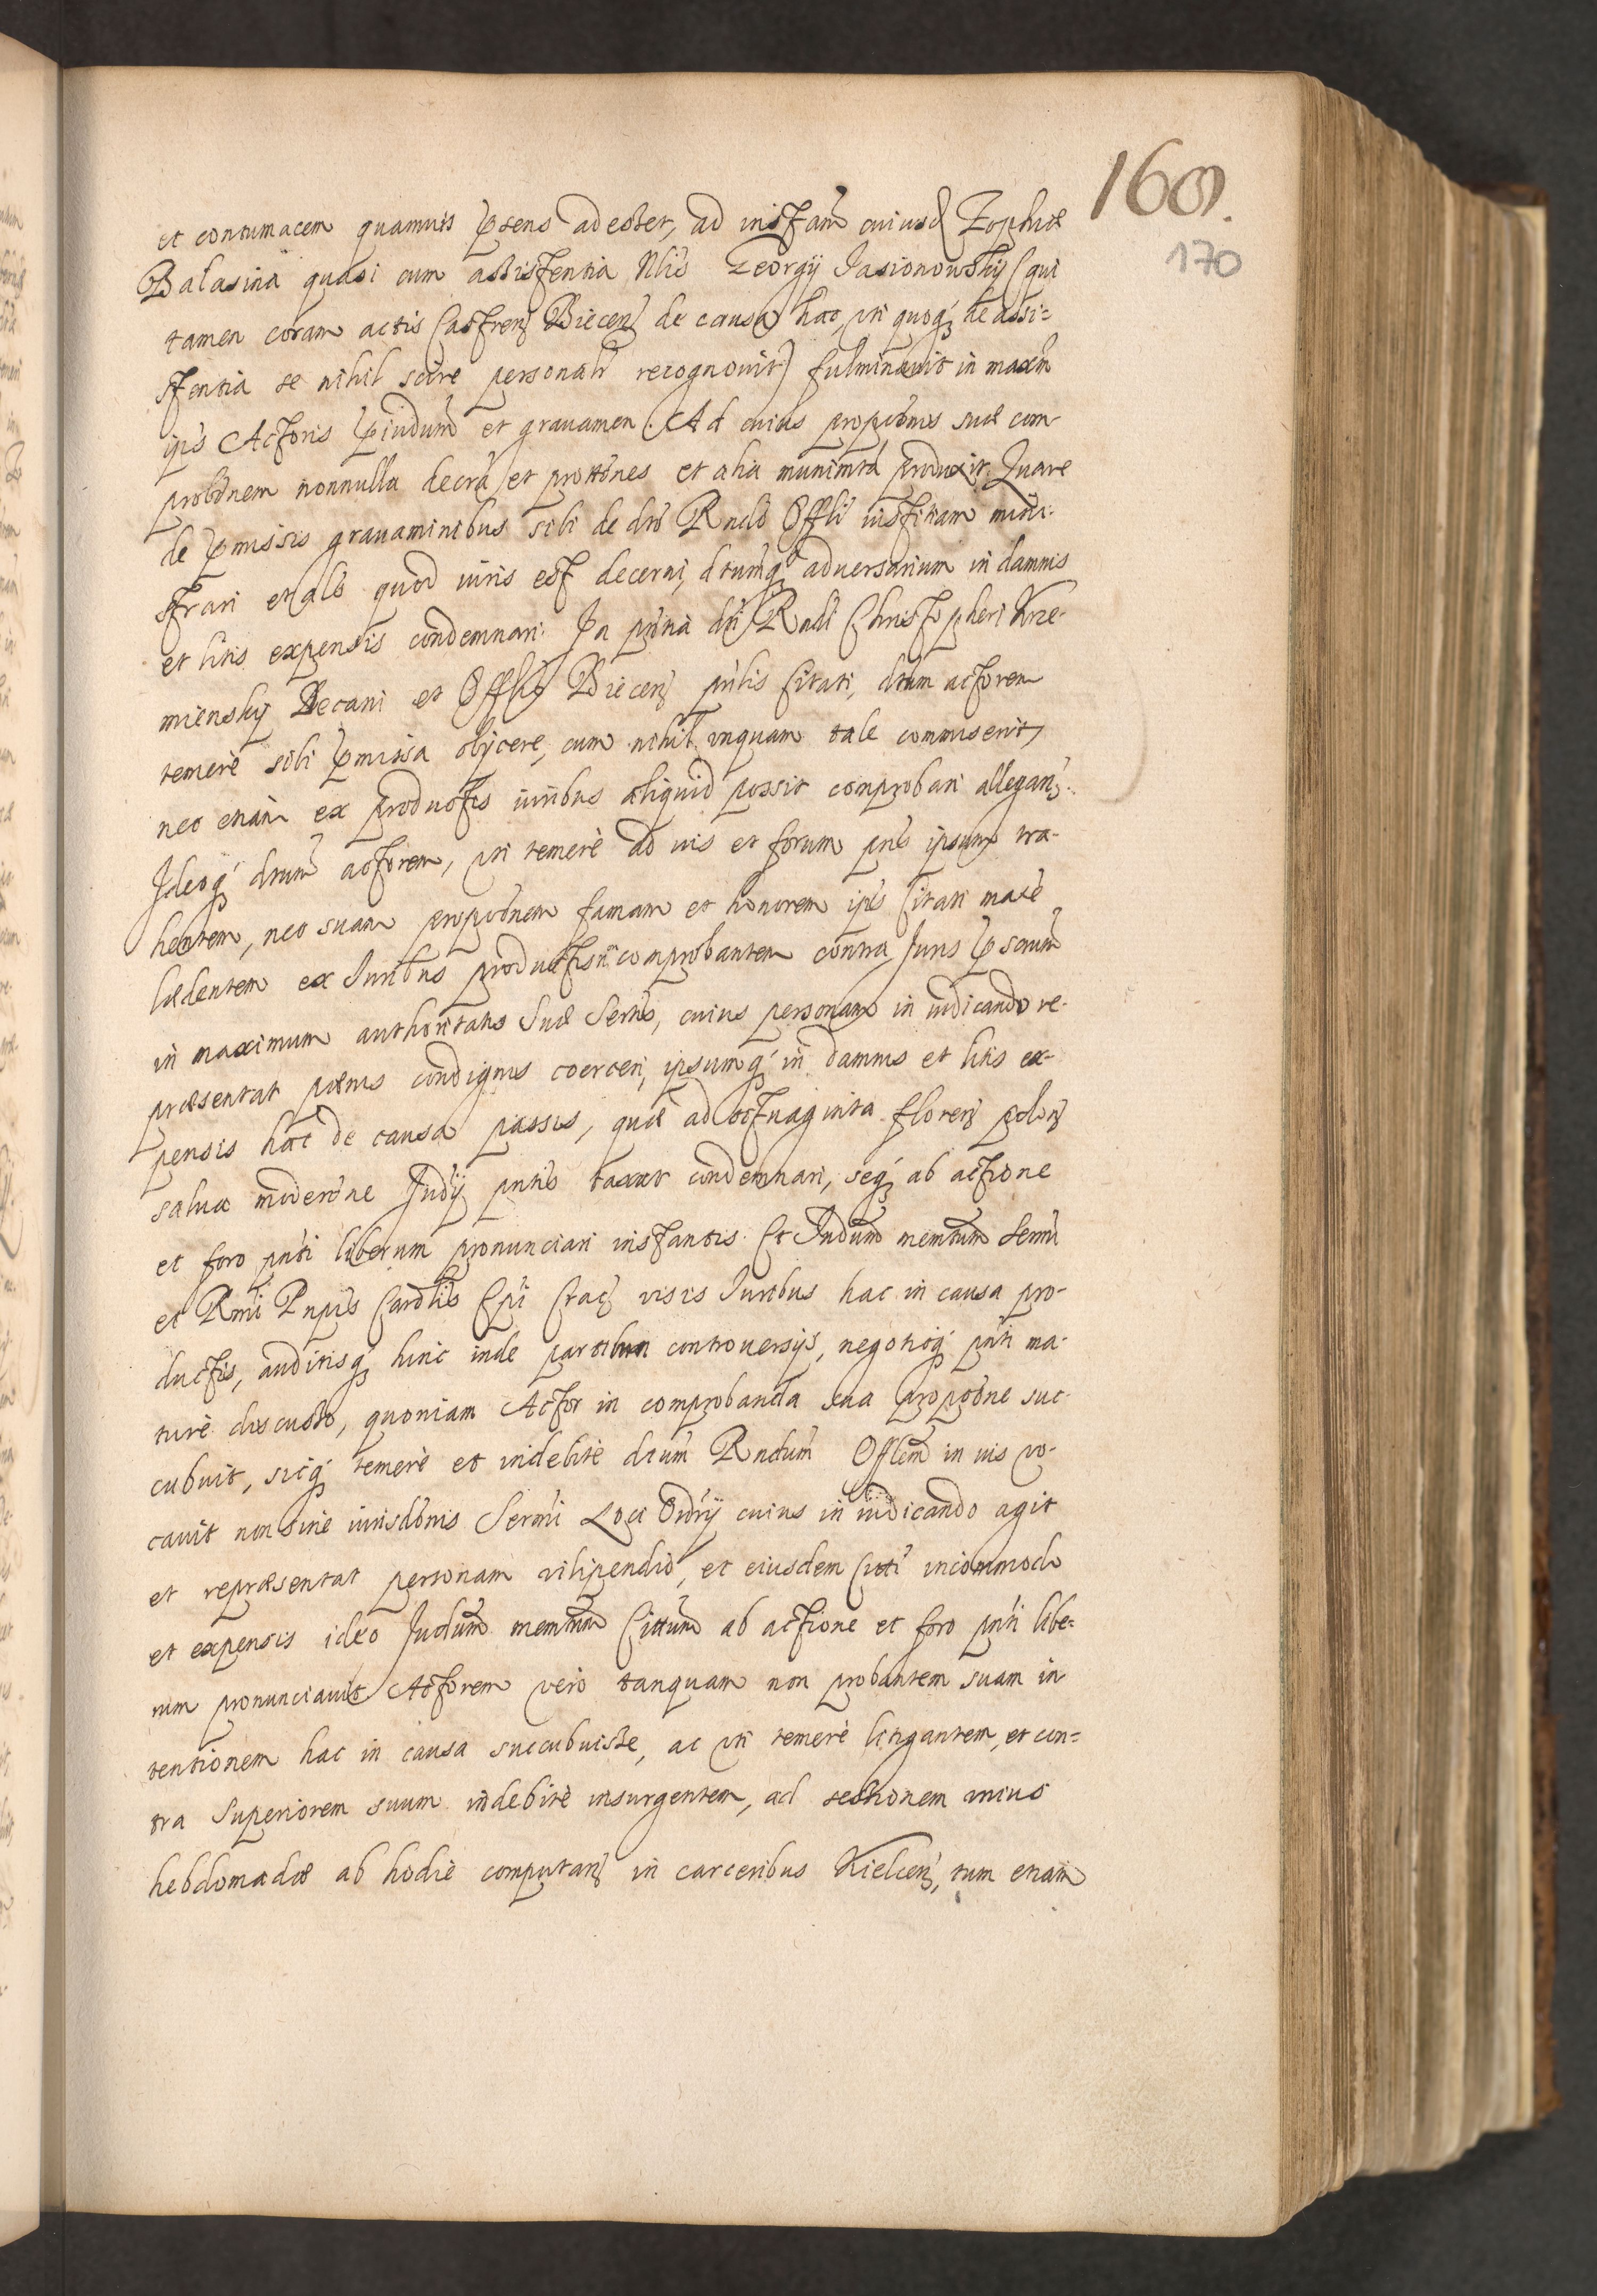 160.
170
et contumacem quamuis pręsens adesset, ad instam̃ cuiusd Zophiæ
Balasina quasi cum assistentia Nlis Georgij Jasionowsky (qui
tamen coram actis Castreń Biecen̄ de causa hac, vti quoq́ de assi=
stentia se nihil scire personalr̃ recognouit) fulminauit in maxm̃
ipĩs Actoris pręiudiũm et grauamen. Ad cuius proposõnis suæ com
probõnem nonnulla decrã et prottõnes et alia munimtã produxit. Quare
de pręmissis grauaminibus sibi de dto Rndo Offli iustitiam mini-
strari et als quod iuris est decerni, dtumq́ aduersarium in damnis
et litis expensis condemnari. In pñtia dti Rndi Christopheri Krze-
miensky Decani et Offlis Biecen̄ pñtis Citati, dtum actorem
temerè sibi pręmissa obijcere, cum nihil vnquam tale commiserit,
nec etiam ex productis iuribus aliquid possit comprobari allegan̄.
Ideoq́ dtum actorem, vti temerè ad ius et forum pñs ipsum tra-
hentem, nec suam proposõnem famam et honorem ipĩs Citati male
lædentem ex Iuribus productis comprobantem contra Iuris pręscrium̃
in maximum authoritatis Suæ Sertis, cuius personam in iudicando re-
præsentat pœnis condignis coerceri, ipsumq́ in damnis et litis ex-
pensis hac de causa passis, quæ ad octuaginta floren̄ polon̄
salua moderõne Iudij pñtis taxat condemnari, seq́ ab actione
et foro pñti liberum pronunciari instantis. Et Iudium memtum Sermi
et Rmi Pnpis Cardlis Epĩ Crac̄ visis Iuribus hac in causa pro-
ductis, auditisq́ hinc inde partium controuersijs, negotioq́ pñti ma-
turè discusso, quoniam Actor in comprobanda sua proposõne suc-
cubuit, sicq́ temerè et indebitè dtum Rndum Offlem in ius vo-
cauit non sine iurisdõnis Sermi Loci Ordrij cuius in iudicando agit
et repræsentat personam vilipendio, et eiusdem Citti incommodo
et expensis ideo Iudium memtum Cittum ab actione et foro pñti libe=
rum pronunciauit Actorem vero tanquam non probantem suam in
tentionem hac in causa succubuisse, ac vti temerè litigantem, et con=
tra Superiorem suum indebitè insurgentem, ad sessionem vnius
hebdomadæ ab hodie computan̄ in carceribus Kielcen̄, tum etiam